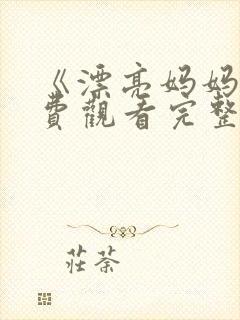 《漂亮妈妈
費觀看完整
莊荼